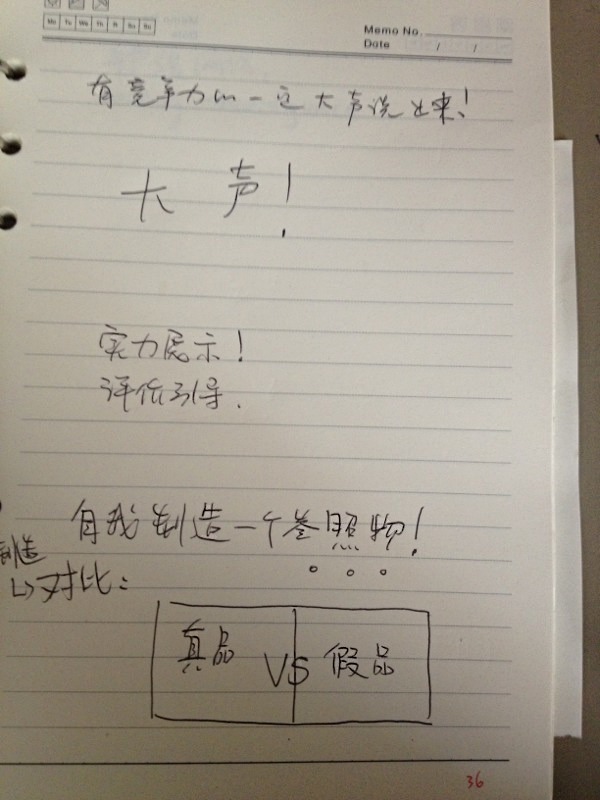 Mo Tu We Th Fr Sa Su
Memo No.
Date / /
有竞争力的一定大声说出来！
大声！
实力展示！
评价引导.
自我制造一个参照物！
制造
↳对比：
真品 VS 假品
36